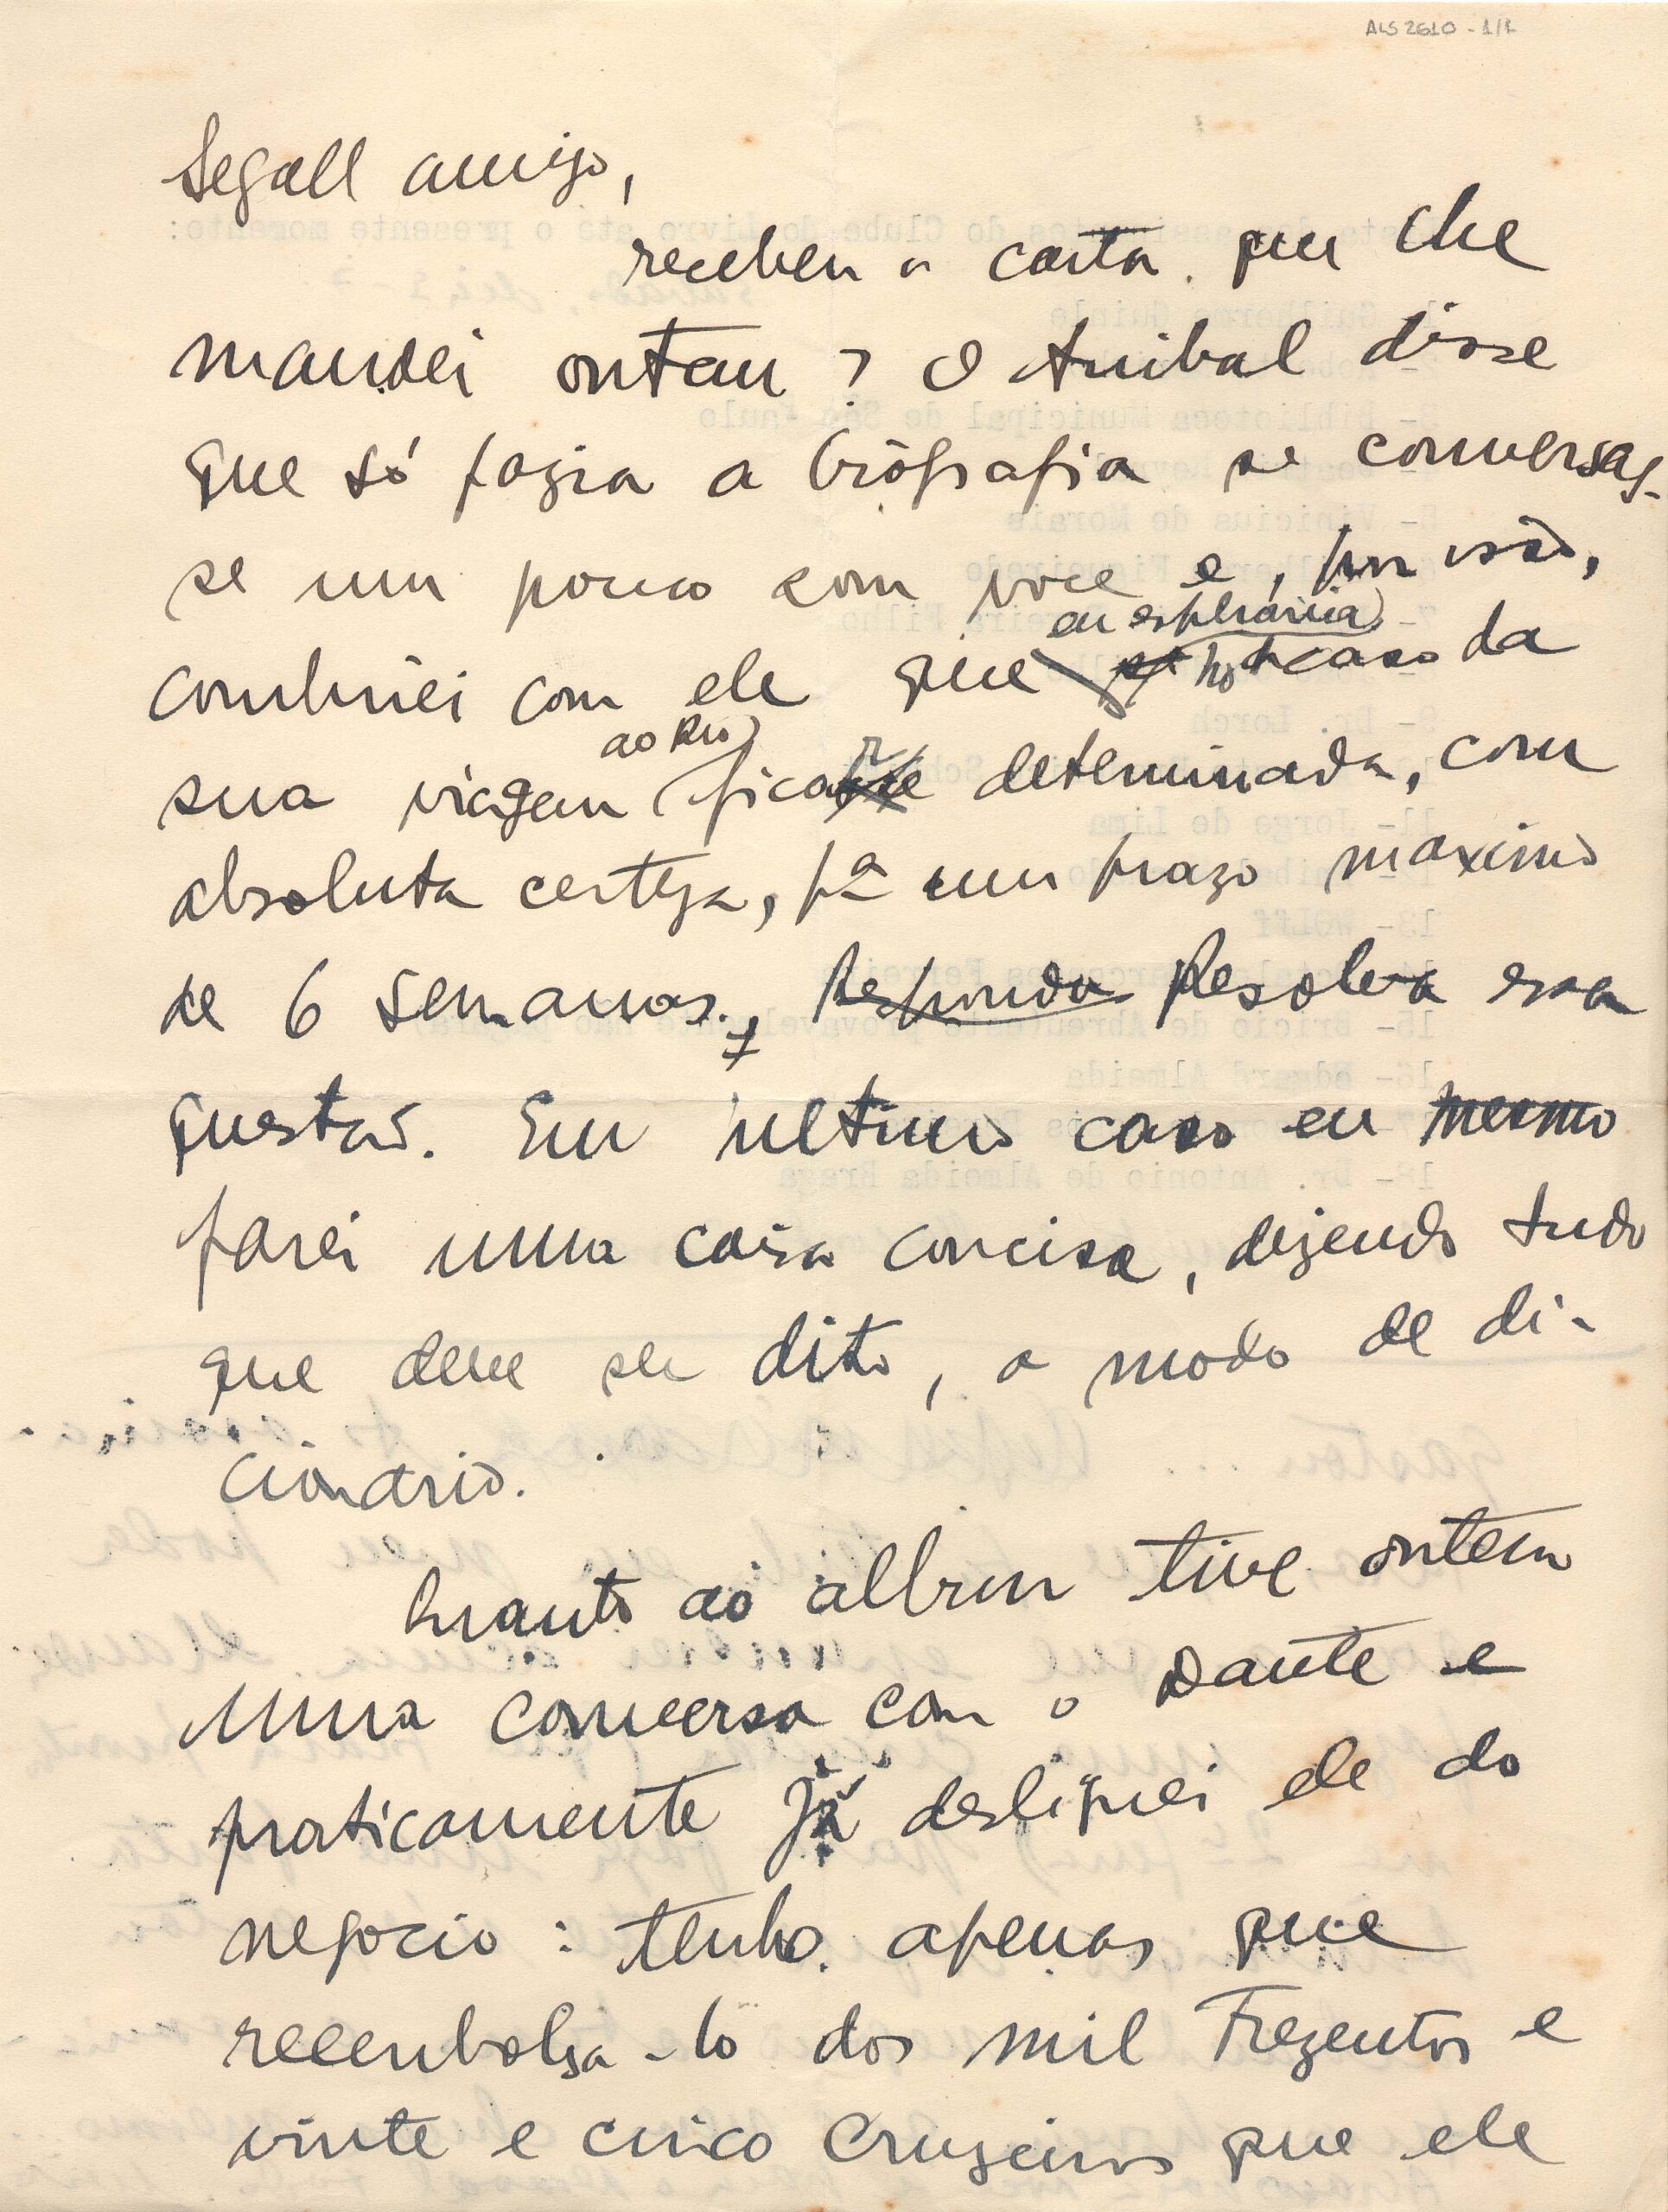 ALS 2610 - 1/1
Segall amigo,
recebeu a carta que lhe
mandei ontem? O Anibal disse
que só fazia a biografia se conversas-
se um pouco com voce e, por isso,
combinei com ele que eu esperaria no caso da
sua viagem ao Rio ficar determinada, com
absoluta certeza, pª um prazo maximo
de 6 semanas. Responda Resolva essa
questão. Em ultimo caso eu mesmo
farei uma coisa concisa, dizendo tudo
que deve ser dito, a modo de di-
cionario.
Quanto ao album tive ontem
uma conversa com o Dante e
praticamente já desliguei ele do
negocio: tenho apenas que
reembolsa-lo dos mil trezentos e
vinte e cinco cruzeiros que ele